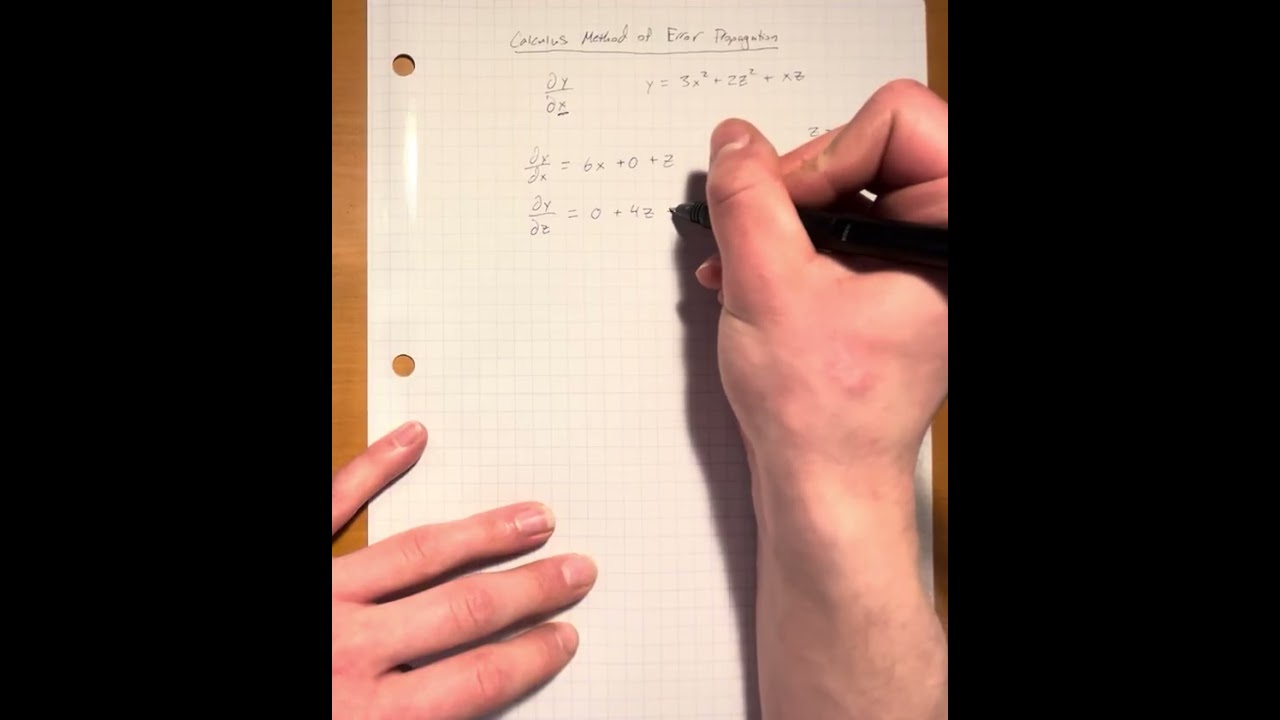 Calculus Method of Error Propagation
∂y/∂x y = 3x² + 2z² + xz
z =
∂y/∂x = 6x + 0 + z
∂y/∂z = 0 + 4z